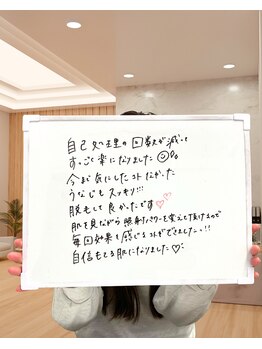 自己処理の回数が減って
すっごく楽になりました
今まで気にしたコトなかった
うなじもスッキリ!!!
脱毛して良かったです♡♡
肌を見ながら照射パワーを変えて頂けるので
毎回効果を感じるコトができました!!
自信もてる肌になりました♡